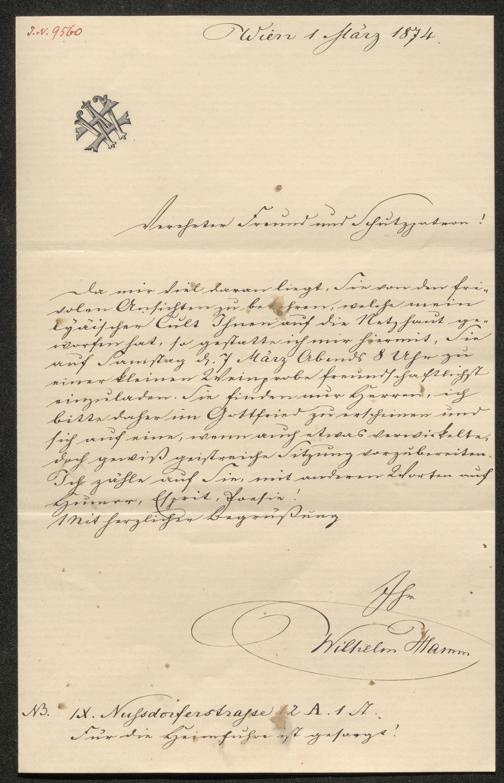 J.N. 9560
Wien 1 März 1874.
Verehrter Freund und Schutzpatron!
Da mir viel daran liegt, Sie von den fri-
volen Ansichten zu bekehren, welche mein
lyäischer Cult Ihnen auf die Netzhaut ge-
worfen hat, so gestatte ich mir hiermit, Sie
auf Samstag d. 7 März Abends 8 Uhr zu
einer kleinen Weinprobe freundschaftlichst
einzuladen. Sie finden nur Herren, ich
bitte daher im Gottfried zu erscheinen und
sich auf eine, wenn auch etwas verwickelte,
doch gewiß geistreiche Sitzung vorzubereiten.
Ich zähle auf Sie, mit anderen Worten auf
Humor, Esprit, Poesie!
Mit herzlicher Begrüßung
Ihr
Wilhelm Hamm
NB. IX. Nußdorferstraße 2 A. 1 St.
Für die Heimfuhre ist gesorgt!